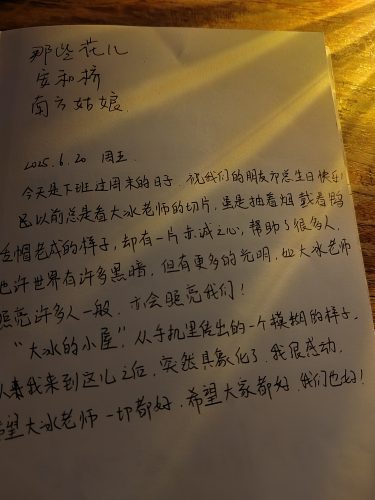 那些花儿
安和桥
南方姑娘
2025.6.20 周五
今天是下班过周末的日子、祝我们的朋友 总生日快乐!
以前总是看大冰老师的切片、虽是抽着烟 戴着鸭
舌帽老成的样子,却有一片赤诚之心,帮助了很多人,
也许世界有许多黑暗,但有更多的光明,如大冰老师
照亮许多人一般,亦会照亮我们!
“大冰的小屋”,从手机里传出的一个模糊的样子,
从 我来到这儿之后,突然具象化了,我很感动,
希望大冰老师 一切都好,希望大家都好,我们也好!